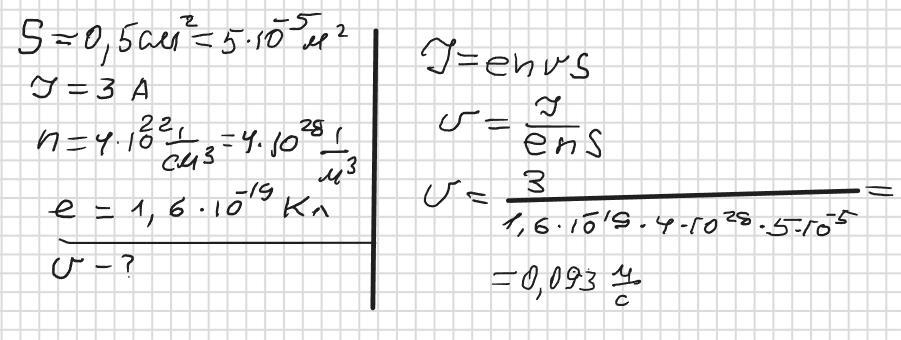 S = 0,5 см² = 5·10⁻⁵ м²
I = 3 А
n = 4·10²² 1/см³ = 4·10²⁸ 1/м³
e = 1,6·10⁻¹⁹ Кл
v - ?
I = envS
v = I/enS
v = 3/1,6·10⁻¹⁹·4·10²⁸·5·10⁻⁵ =
= 0,093 м/с